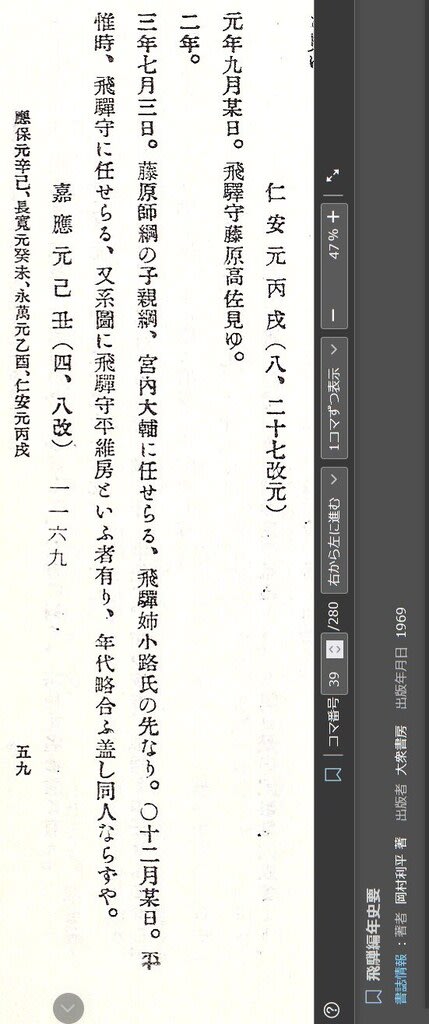 飛騨編年史要
書誌情報 : 著者 岡村利平 著 出版者 大衆書房 出版年月日 1969
コマ番号 39 /280 右から左に進む 1コマずつ表示 − 47% +
仁安元丙戌（八、二十七改元）
元年九月某日。飛驒守藤原高佐見ゆ。
二年。
三年七月三日。藤原師綱の子親綱、宮内大輔に任せらる、飛驒姉小路氏の先なり。〇十二月某日。平
惟時、飛驒守に任せらる、又系圖に飛驒守平維房といふ者有り、年代略合ふ盖し同人ならずや。
嘉應元己丑（四、八改） 一一六九
應保元辛巳、長寛元癸未、永萬元乙酉、仁安元丙戌
五九